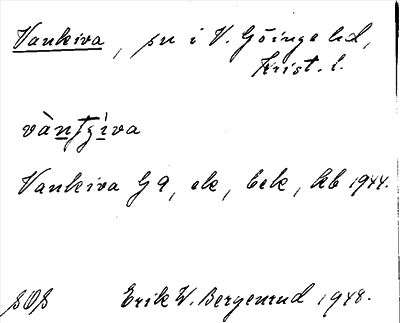 Vankiva, sn i V. Göinge hd,
Krist. l.
vàntʃìva
Vankiva G 9, ek, bek, kb 1944.
SOS Erik W. Bergenrud 1948.